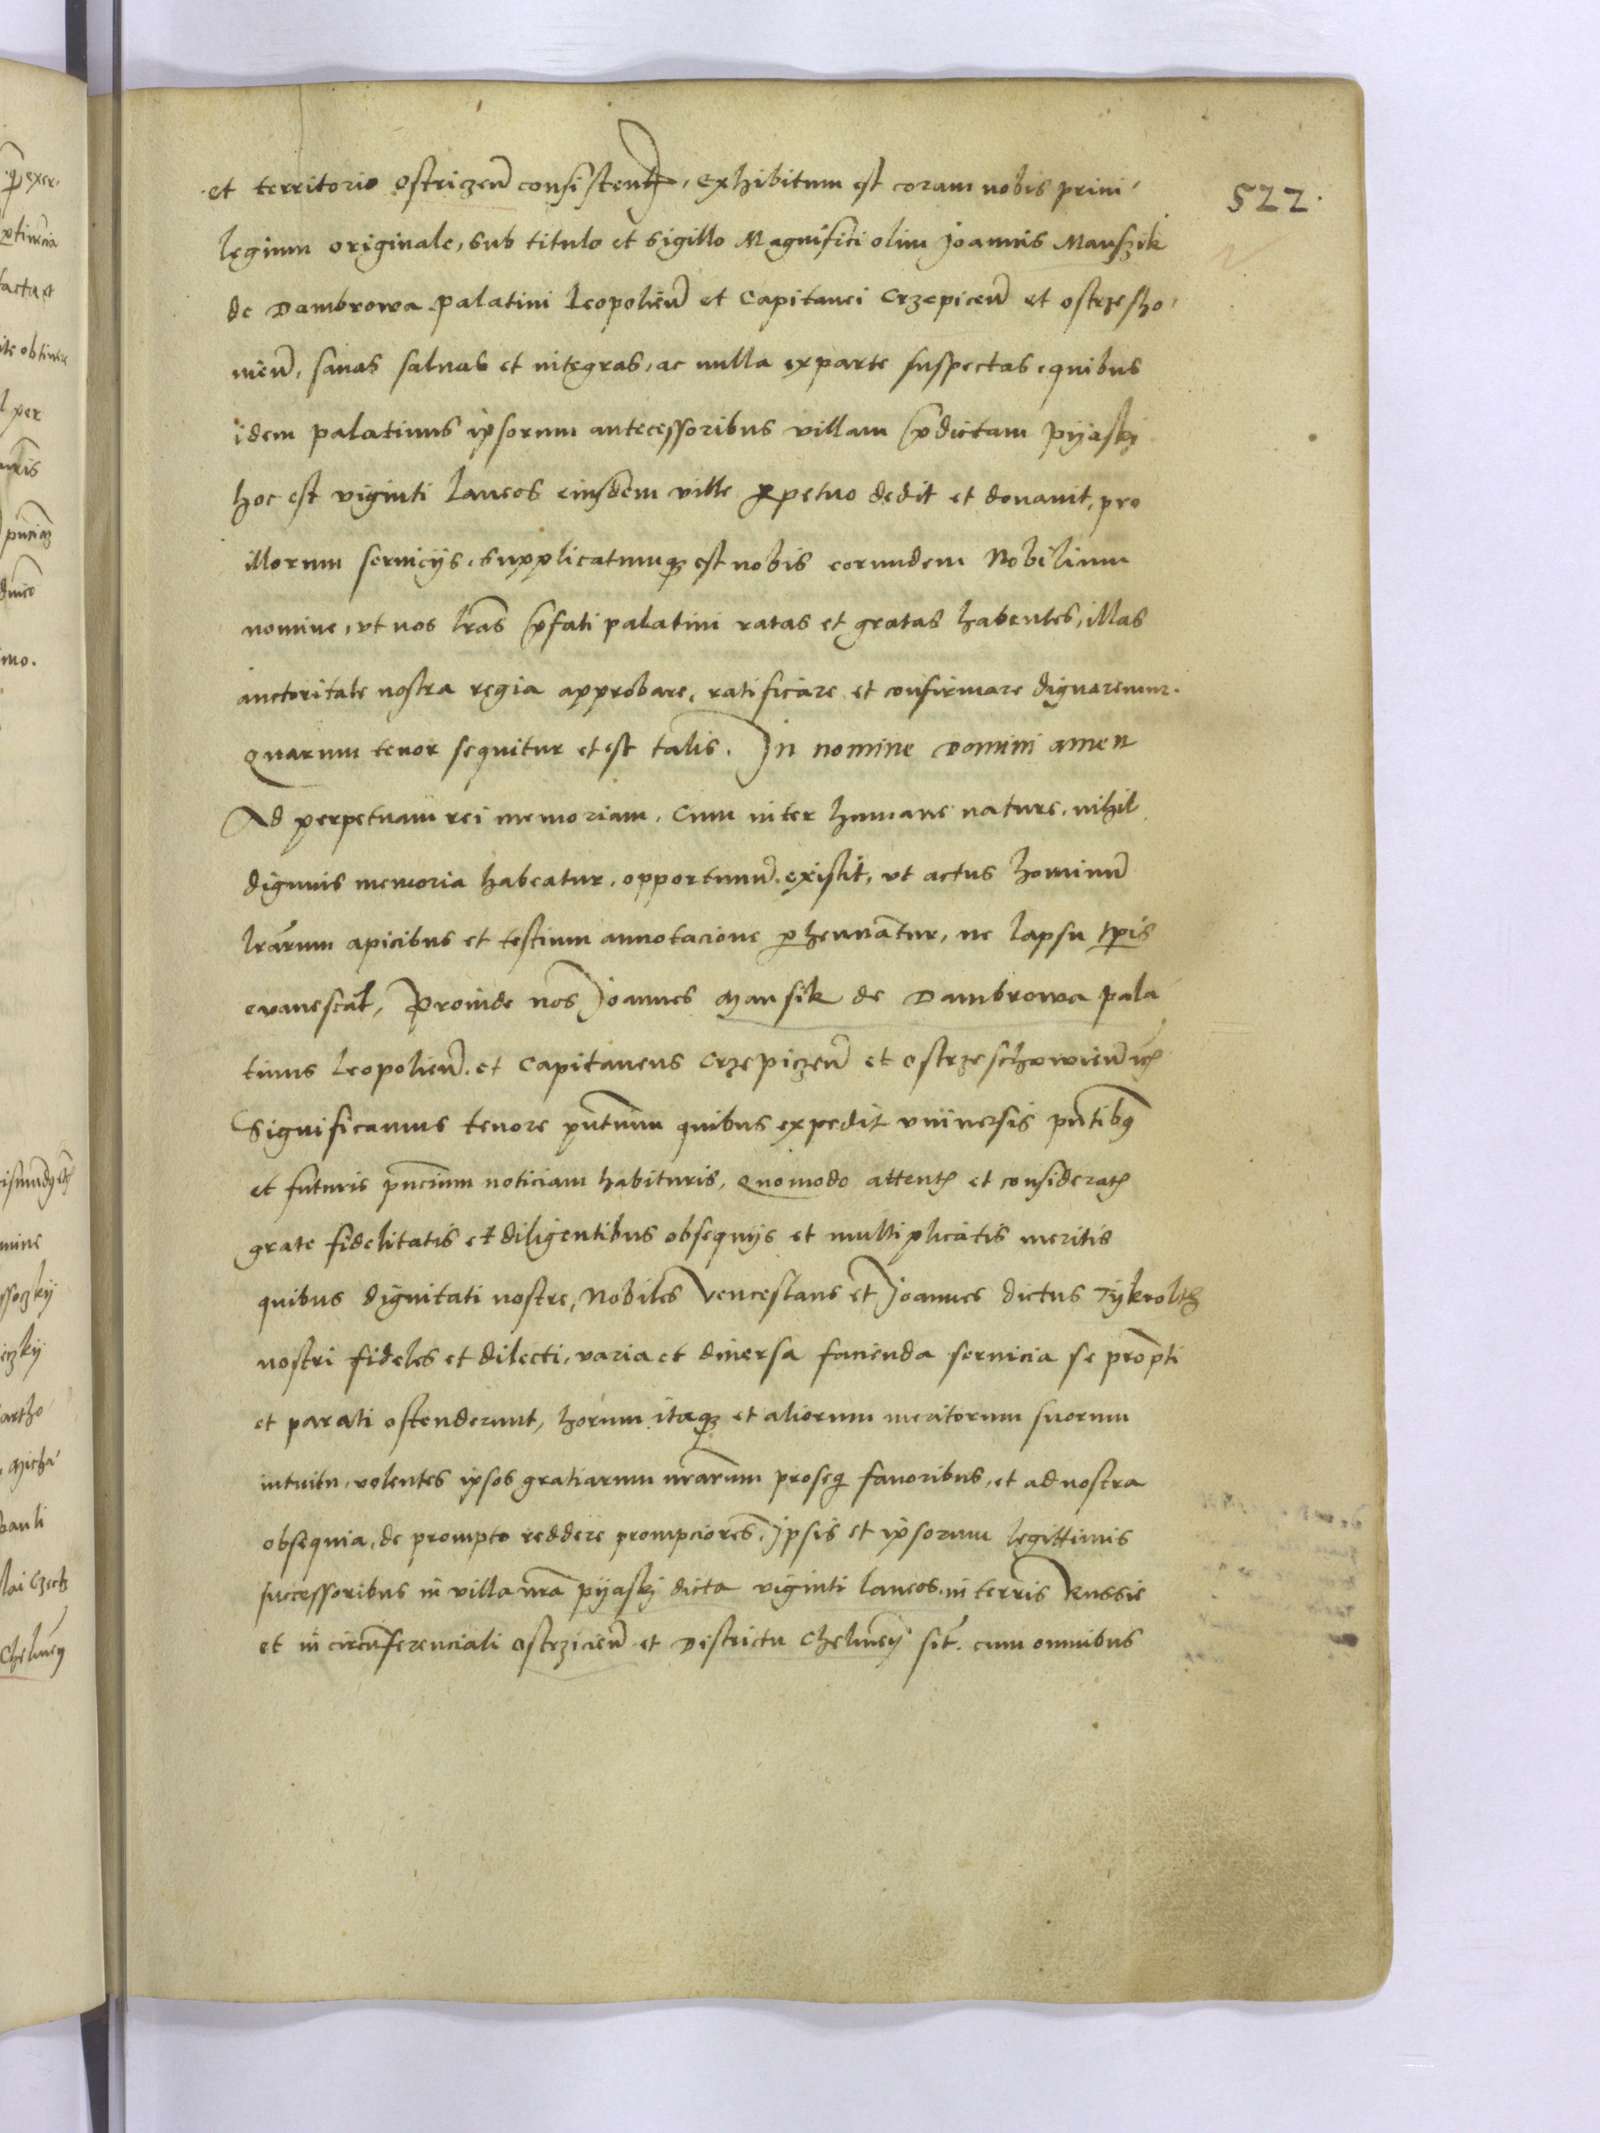 522.
et territorio Ostriczeñ consisteñ, exhibitum est coram nobis privi
legium originale, sub titulo et sigillo Magnifici olim Joannis Manszik
de Dambrowa palatini Leopolieñ et Capitanei Crzepiceñ et Ostrzesho
vieñ, sanas salvas et integras, ac nulla ex parte suspectas, quibus
idem palatinus ipsorum antecessoribus villam p̃dictam Pyaski
hoc est viginti laneos eiusdem ville ꝑpetuo dedit et donavit, pro
illorum serviciis, supplicatumqꝫ est nobis eorundem Nobilium
nomine, ut nos l̃ras p̃fati palatini ratas et gratas habentes, illas
auctoritate nostra regia approbare, ratificare et confirmare dignaremur.
Quarum tenor sequitur et est talis. In nomine Domini amen
Ad perpetuam rei memoriam. Cum inter humane nature, nihil
dignius memoria habeatur, opportunũ existit, ut actus hominũ
l̃rarum apicibus et testium annotacione ꝑhennãtur, ne lapsu tp̃is
evanescãt, Proinde nos Joannes Mansik de Dambrowa pala
tinus Leopolieñ. et Capitaneus Crzepiczeñ et Ostrzeschowieñ ꝛc̃
Significamus tenore p̃ntium quibus expedit universis p̃ntibꝫ
et futuris p̃ncium noticiam habituris, Quomodo attent̃ et considerat̃
grate fidelitatis et diligentibus obsequiis et multiplicatis meritis
quibus dignitati nostre, Nobiles Venceslaus et Joannes dictus Tykroltz
nostri fideles et dilecti, varia et diversa facienda servicia se prom̃pti
et parati ostenderunt, horum itaqꝫ et aliorum meritorum suorum
intuitu, volentes ipsos gratiarum ñrarum proseq̃ favoribus, et ad nostra
obsequia, de prompto reddere prompciores, Ipsis et ipsorum legittimis
successoribus in villa ñra Pyaski dicta viginti laneos, in terris Russie
et in circũferenciali Ostrzicieñ et Districtu Chelmeñ sit̃. cum omnibus